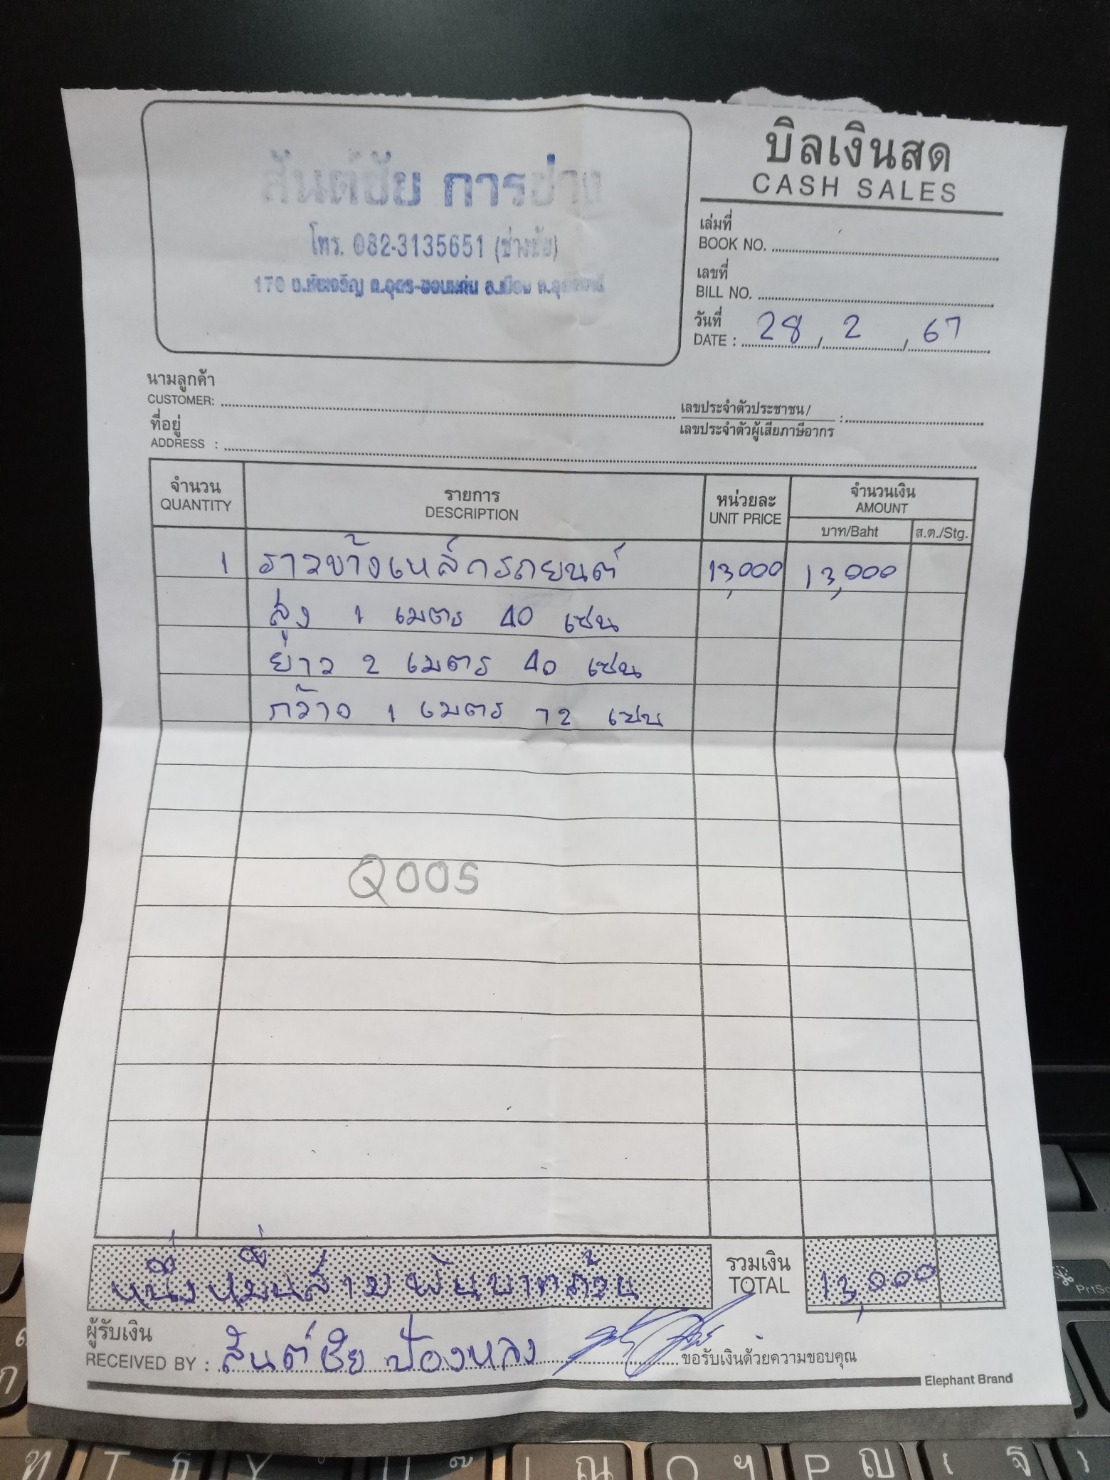 สันต์ชัย การช่าง
โทร. 082-3135651 (ช่างชัย)
170
บิลเงินสด
CASH SALES
เล่มที่
BOOK NO.
เลขที่
BILL NO.
วันที่
DATE : 28 / 2 / 67
นามลูกค้า
CUSTOMER:
เลขประจำตัวประชาชน/
เลขประจำตัวผู้เสียภาษีอากร :
ที่อยู่
ADDRESS :
จำนวน รายการ หน่วยละ จำนวนเงิน
QUANTITY DESCRIPTION UNIT PRICE AMOUNT
บาท/Baht ส.ต./Stg.
1 ราวข้างเหล็กรถยนต์ 13,000 13,000
สูง 1 เมตร 40 เซน
ยาว 2 เมตร 40 เซน
กว้าง 1 เมตร 72 เซน
Q005
หนึ่งหมื่นสามพันบาทถ้วน
รวมเงิน
TOTAL 13,000
ผู้รับเงิน
RECEIVED BY : สันต์ชัย ป้องหลง ขอรับเงินด้วยความขอบคุณ
Elephant Brand